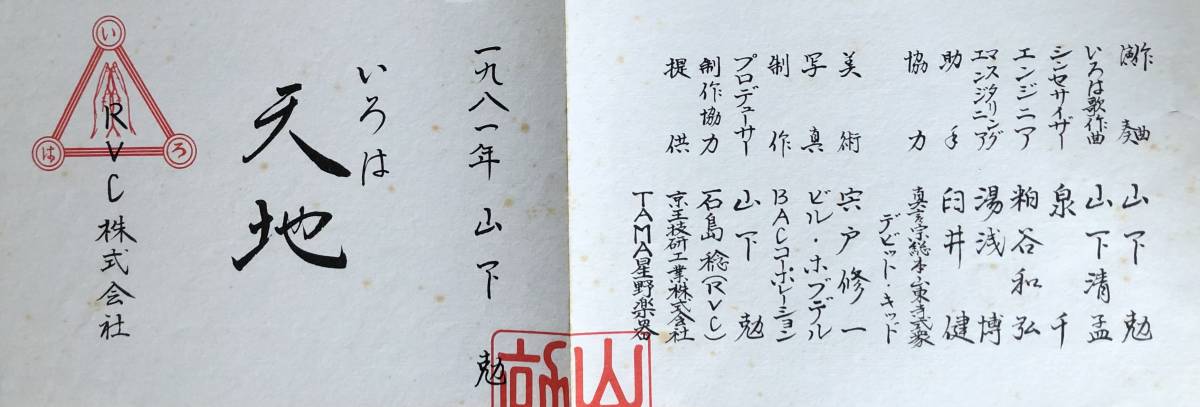 作曲 演奏 山下勉
いろは歌作曲 山下清孟
シンセサイザー 泉千
エンジニア 粕谷和弘
マスタリングエンジニア 湯浅博
助手 臼井健
協力 真言宗総本山東寺式衆
デビット・キッド
美術 宍戸修一
写真 ビル・ホブデル
制作 BACコーポレーション
プロデューサー 山下勉
制作協力 石島稔(RVC)
提供 京王技研工業株式会社
TAMA星野楽器
一九八一年 山下勉
いろは
天地
RVC株式会社
い
ろ
は